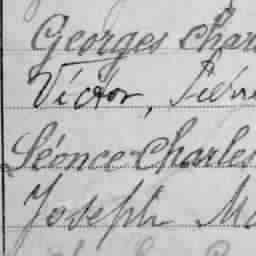 Georges Char
Victor, Pierr
Léonce Charles
Joseph Ma